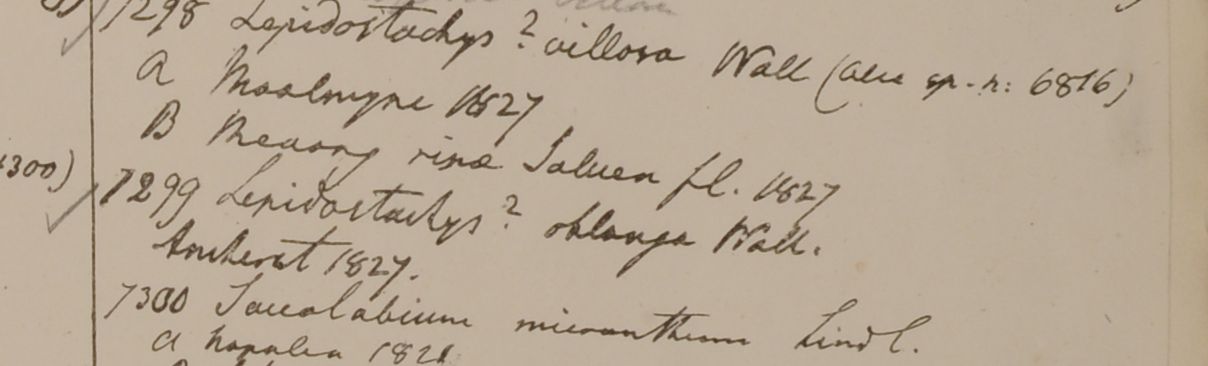 7298 Lepidostachys ? villosa Wall (alia sp. n: 6816)
A Moalmyne 1827
B ripæ Saluen fl. 1827
300)
7299 Lepidostachys ? oblonga Wall.
Amherst 1827.
7300 Saccolabium micranthum Lindl.
a Napalia 1821